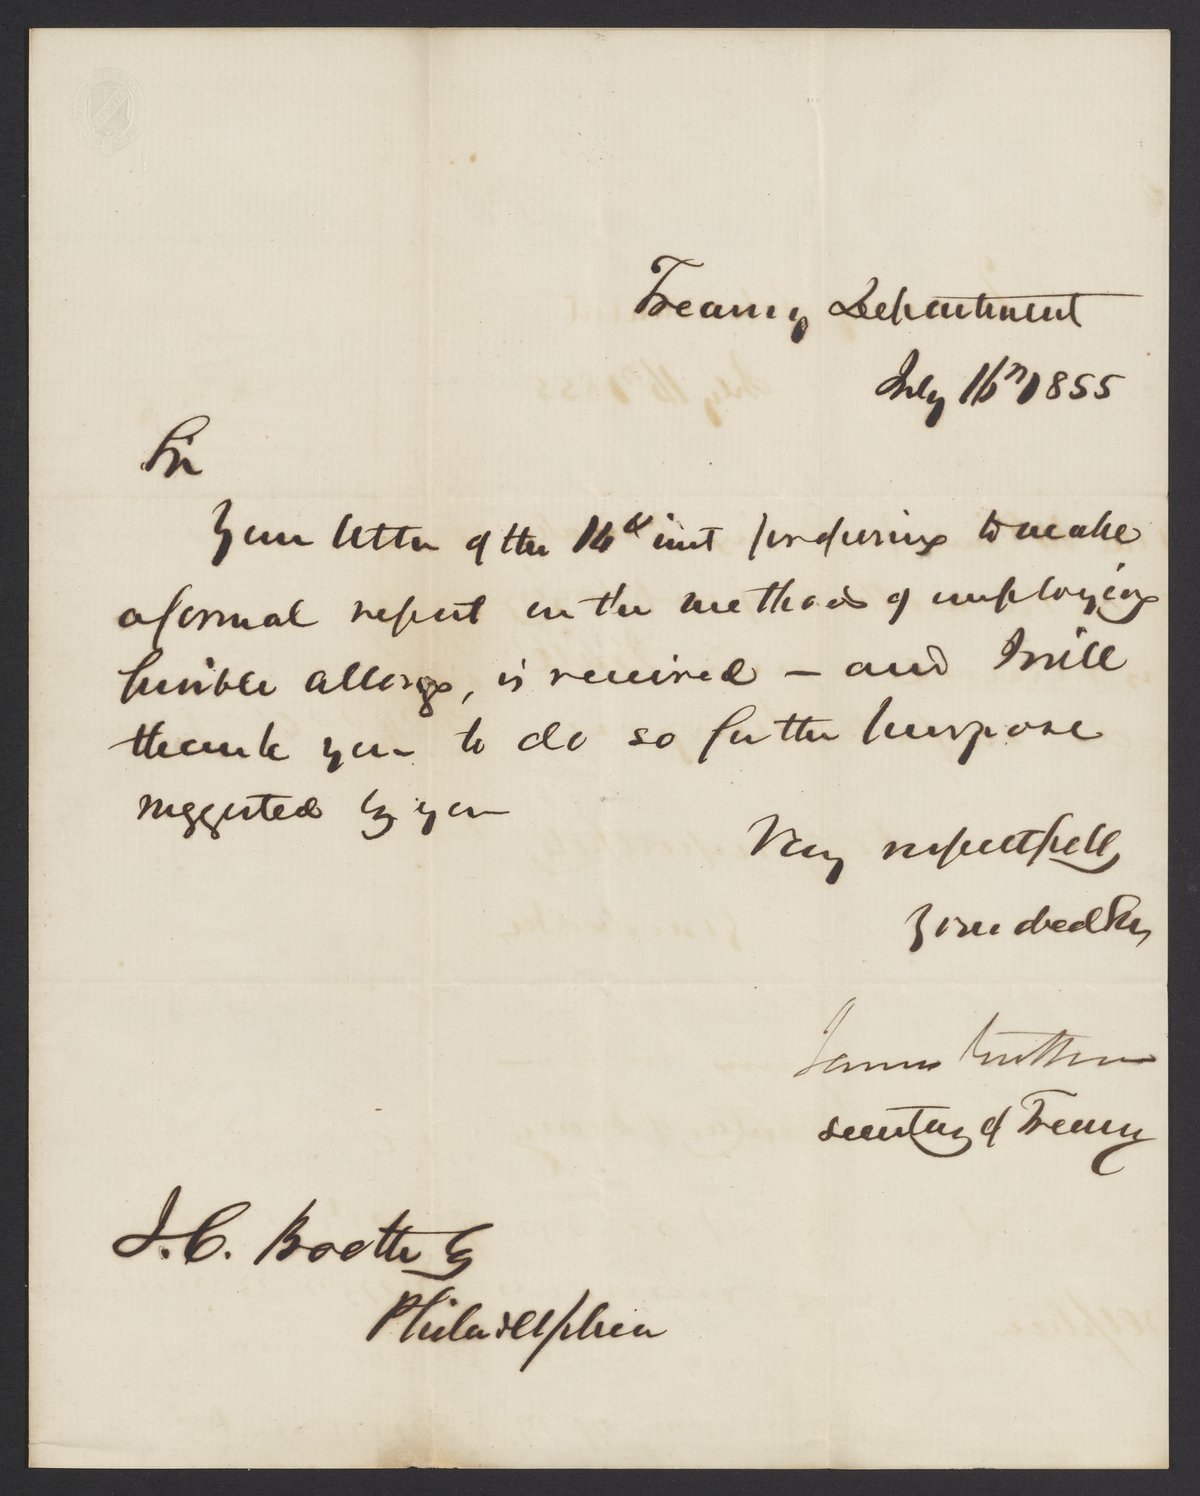 Treasury Department
July 16th 1855
Sir
Your letter of the 14th inst proposing to make
a formal report on the methods of employing
fusible alloys, is received – and I will
thank you to do so for the purpose
suggested by you
Very respectfully
Your obed Sv
James Guthrie
Secretary of Treasury
J. C. Booth Esq
Philadelphia